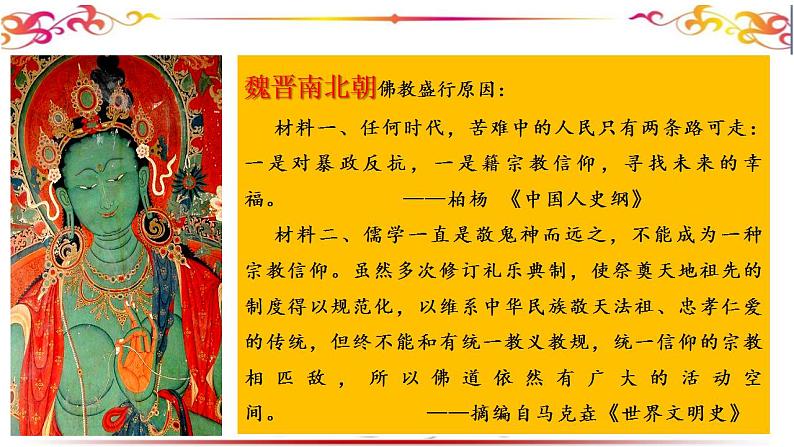 魏晋南北朝佛教盛行原因：
材料一、任何时代，苦难中的人民只有两条路可走：
一是对暴政反抗，一是籍宗教信仰，寻找未来的幸
福。 ——柏杨 《中国人史纲》
材料二、儒学一直是敬鬼神而远之，不能成为一种
宗教信仰。虽然多次修订礼乐典制，使祭奠天地祖先的
制度得以规范化，以维系中华民族敬天法祖、忠孝仁爱
的传统，但终不能和有统一教义教规，统一信仰的宗教
相匹敌，所以佛道依然有广大的活动空
间。 ——摘编自马克垚《世界文明史》